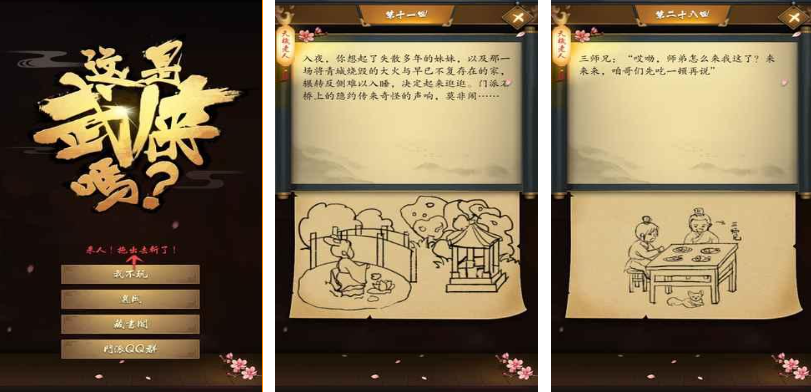 这是
武侠
吗？
来人！拖出去斩了！
我不玩
离线
藏书阁
门派QQ群
第十一回
天机老人
入夜，你想起了失散多年的妹妹，以及那一
场将青城烧毁的大火与早已不复存在的家，
辗转反侧难以入睡，决定起来逛逛。门派
桥上的隐约传来奇怪的声响，莫非闹……
第二十八回
天机老人
三师兄：“哎呦，师弟怎么来我这了？来
来来，咱哥们先吃一顿再说”
三师兄